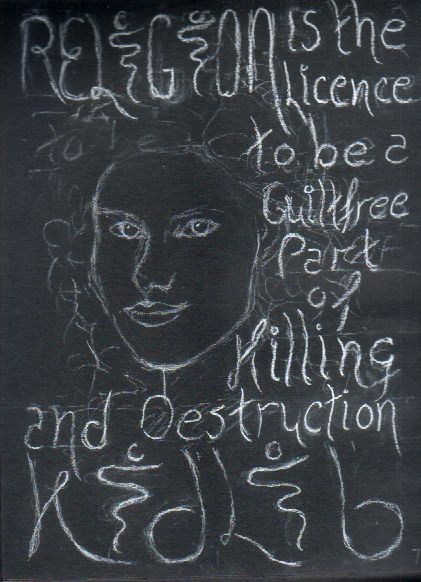 RELiGiON is the
Licence
to be a
Guiltfree
Part
of
Killing
and Destruction
KidLib